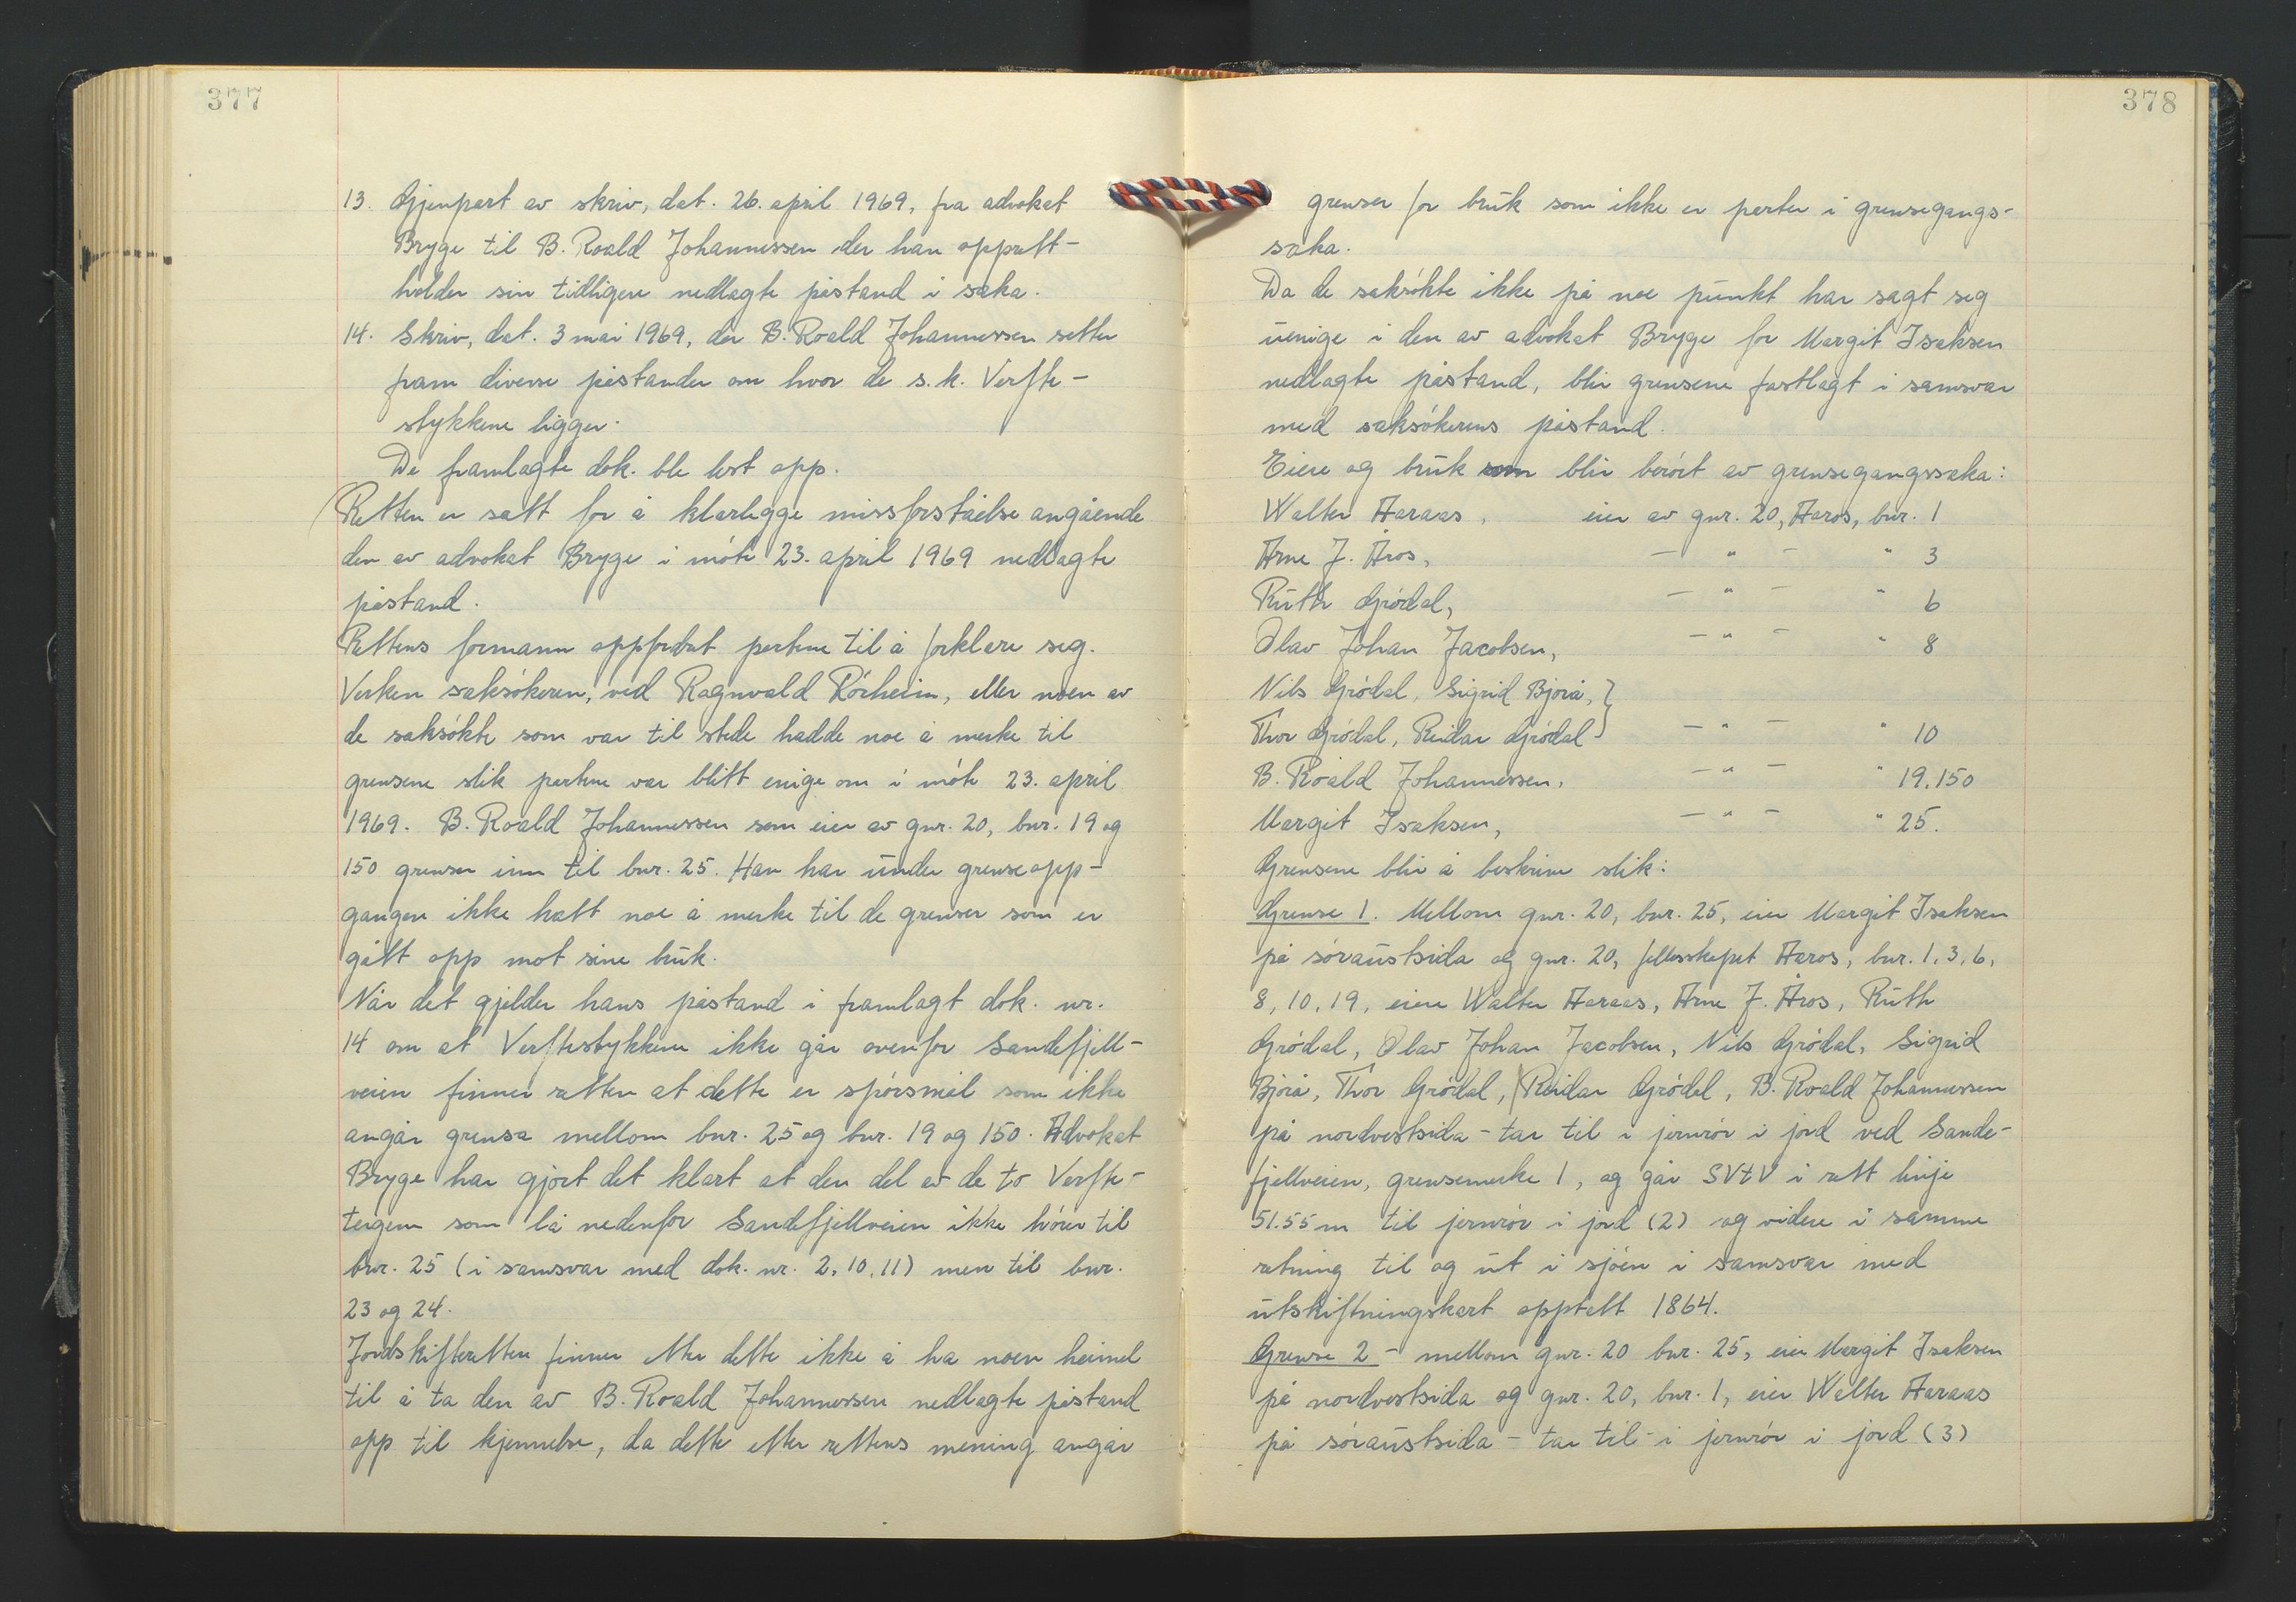 377
13. Gjenpart av skriv, dat. 26. april 1969, fra advokat
Bryge til B. Roald Johannessen der han opprett-
holder sin tidligere nedlagte påstand i saka.
14. Skriv, dat. 3 mai 1969, der B. Roald Johannessen setter
fram diverse påstander om hvor de s.k. Verfte-
stykkene ligger.
De framlagte dok. ble lest opp.
Retten er satt for å klarlegge missforståelse angående
den av advokat Bryge i móte 23. april 1969 nedlagte
påstand.
Rettens formann oppfordret partene til å forklare seg.
Verken saksókeren, ved Ragnvald Rórheim, eller noen av
de saksókte som var til stede hadde noe å merke til
grensene slik partene var blitt enige om i móte 23. april
1969. B. Roald Johannessen som eier av gnr. 20, bnr. 19 og
150 grenser inn til bnr. 25. Han har under grenseopp-
gangen ikke hatt noe å merke til de grenser som er
gått opp mot sine bruk.
Når det gjelder hans påstand i framlagt dok. nr.
14 om at Verftestykkene ikke går ovenfor Sandefjell-
veien finner retten at dette er spórsmål som ikke
angår grensa mellom bnr. 25 og bnr. 19 og 150. Advokat
Bryge har gjort det klart at den del av de to Verfte-
teigene som lå nedenfor Sandefjellveien ikke hórer til
bnr. 25 (i samsvar med dok. nr. 2, 10, 11) men til bnr.
23 og 24.
Jordskifteretten finner etter dette ikke å ha noen heimel
til å ta den av B. Roald Johannessen nedlagte påstand
opp til kjennelse, da dette etter rettens mening angår
378
grenser for bruk som ikke er parter i grensegangs-
saka.
Da de saksókte ikke på noe punkt har sagt seg
uenige i den av advokat Bryge for Margit Isaksen
nedlagte påstand, blir grensene fastlagt i samsvar
med saksókerens påstand.
Eiere og bruk som blir berórt av grensegangssaka:
Walter Aaraas, eier av gnr. 20, Aaros, bnr. 1
Arne J. Åros, — " — " 3
Ruth Gródal, — " — " 6
Olav Johan Jacobsen, — " — " 8
Nils Gródal, Sigrid Bjorå, }
Thor Gródal, Reidar Gródal } — " — " 10
B. Roald Johannessen, — " — " 19, 150
Margit Isaksen, — " — " 25.
Grensene blir å beskrive slik:
Grense 1. Mellom gnr. 20, bnr. 25, eier Margit Isaksen
på sóraustsida og gnr. 20, fellesskapet Aaros, bnr. 1, 3, 6,
8, 10, 19, eiere Walter Aaraas, Arne J. Åros, Ruth
Gródal, Olav Johan Jacobsen, Nils Gródal, Sigrid
Bjorå, Thor Gródal, Reidar Gródal, B. Roald Johannessen
på nordvestsida - tar til i jernrór i jord ved Sande-
fjellveien, grensemerke 1, og går SVtV i rett linje
51.55 m til jernrór i jord (2) og videre i samme
retning til og ut i sjóen i samsvar med
utskiftningskart opptatt 1864.
Grense 2 - mellom gnr. 20 bnr. 25, eier Margit Isaksen
på nordvestsida og gnr. 20, bnr. 1, eier Walter Aaraas
på sóraustsida - tar til i jernrór i jord (3)